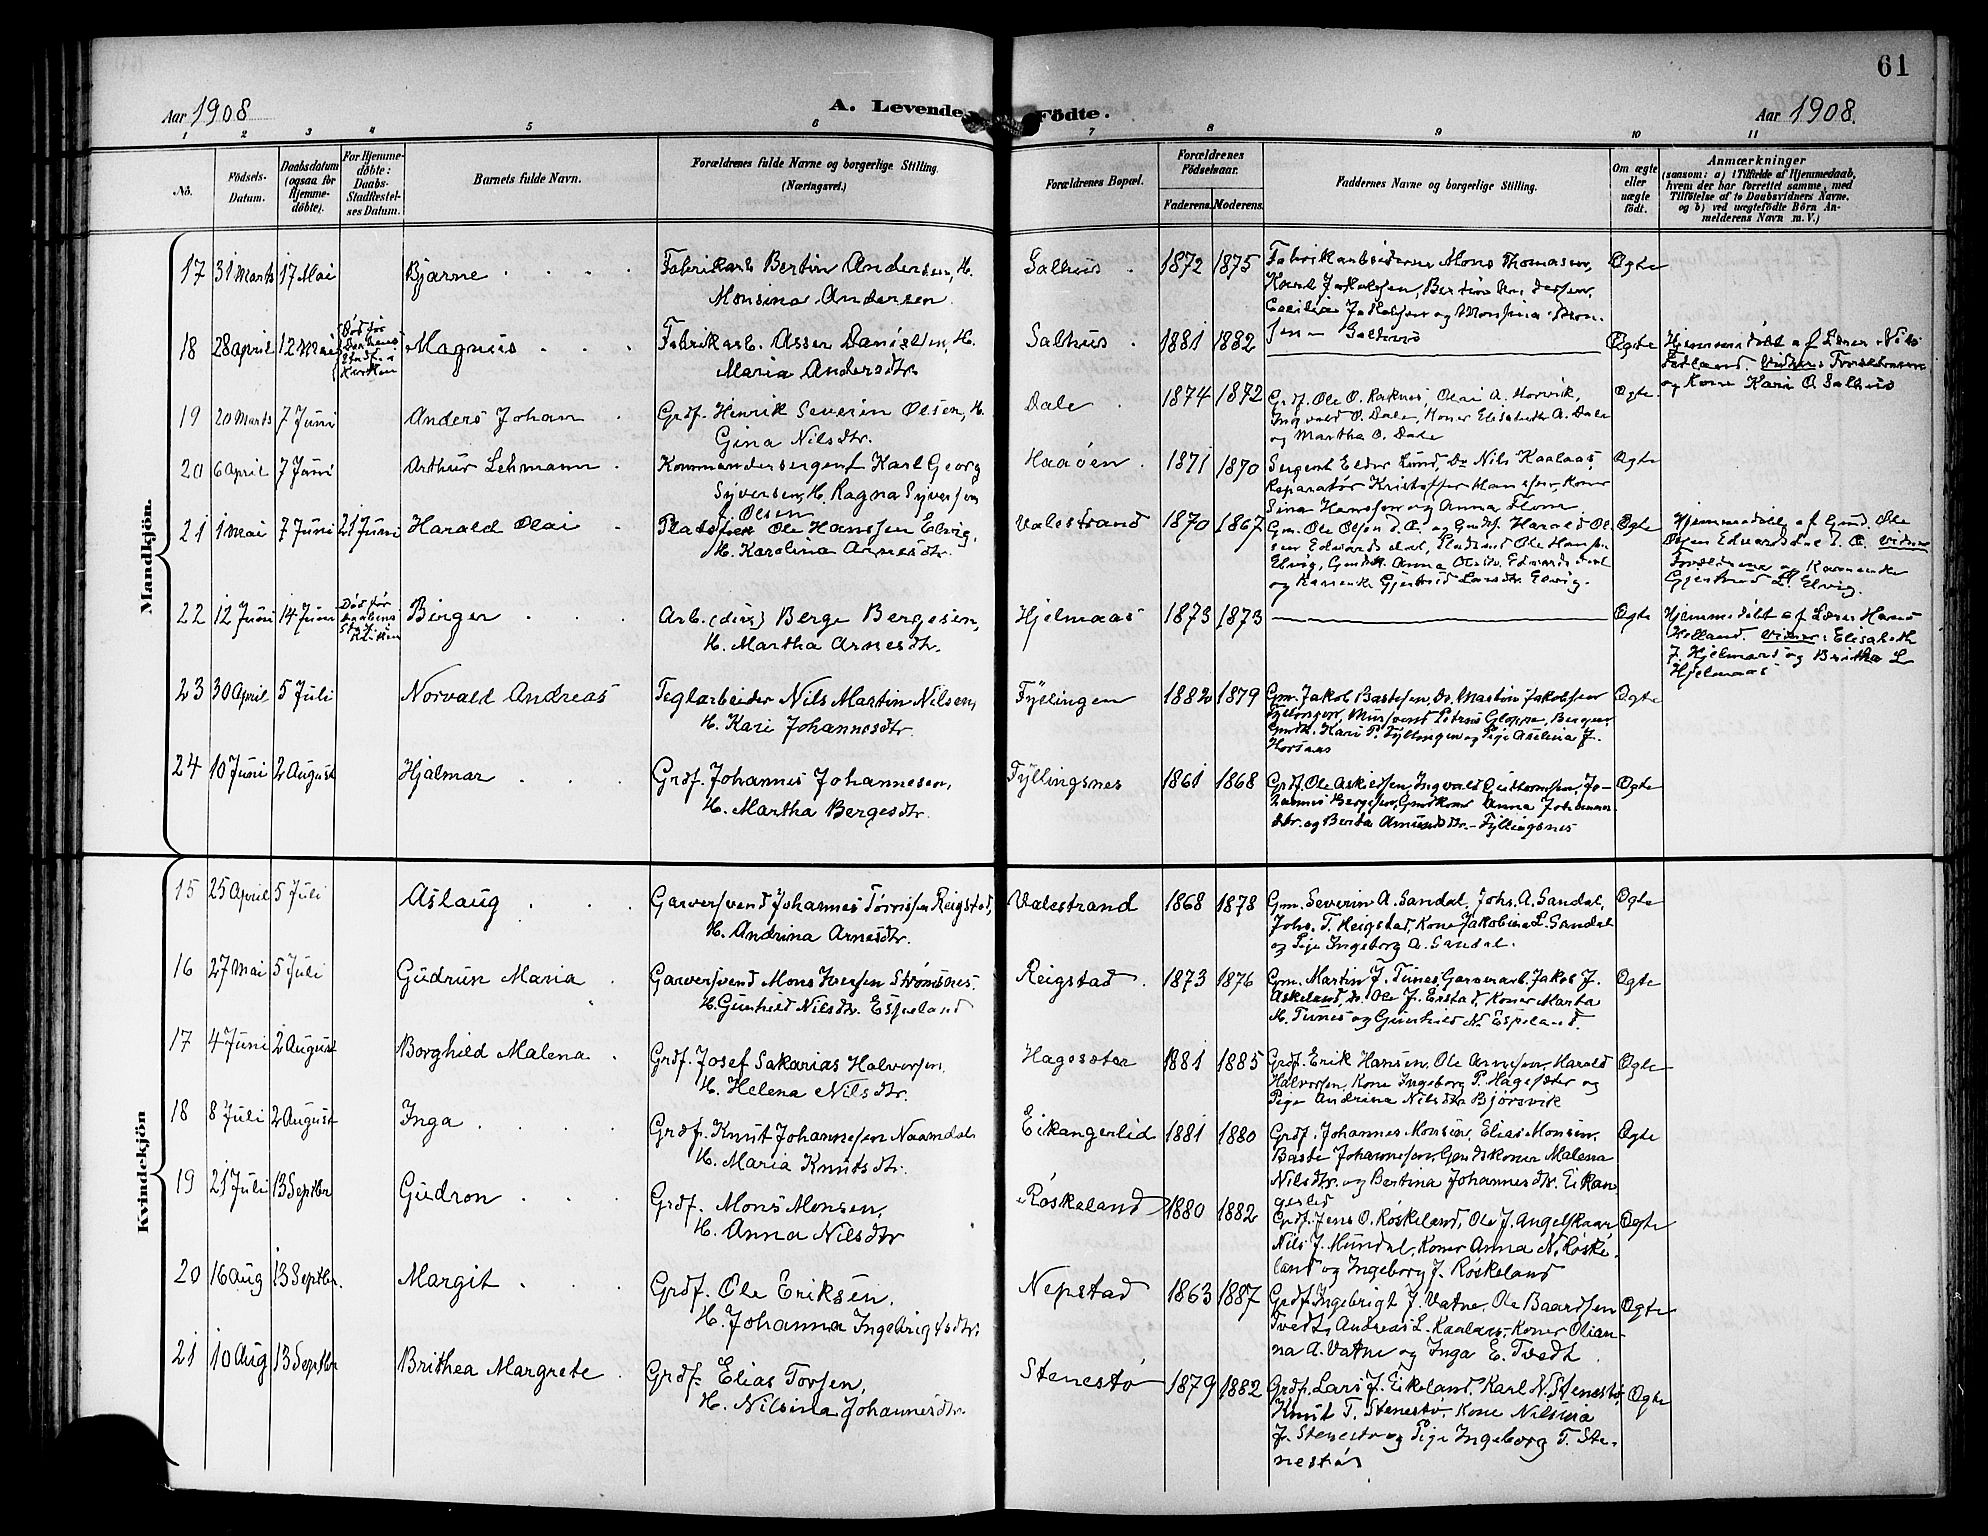 61
Aar 1908
A. Levende Födte.
Aar 1908.
1 2 3 4 5 6 7 8 9 10 11
No.
Födsels-
Datum.
Daabsdatum
(ogsaa for
Hjemme-
döbte).
For Hjemme-
döbte:
Daabs-
Stadfæstel-
ses Datum.
Barnets fulde Navn.
Forældrenes fulde Navne og borgerlige Stilling.
(Næringsvei.)
Forældrenes Bopæl.
Forældrenes
Födselsaar.
Faderens. Moderens.
Faddernes Navne og borgerlige Stilling.
Om ægte
eller
uægte
födt.
Anmærkninger
(saasom: a) i Tilfælde af Hjemmedaab,
hvem der har forrettet samme, med
Tilföielse af to Daabsvidners Navne.
og b) ved uægtefödte Börn An-
melderens Navn m. V.)
Mandkjön.
17 31 Marts 17 Mai Bjarne
Fabrikarb. Bertin Andersen, H.
Monsina Andersen
Salhus 1872 1875
Fabrikarbeiderne Mons Thomassen,
Karl Jakobsen, Bertin Andersen,
Cecilia Jakobsen og Monsina Mon-
sen - Salhus
Ægte
18 28 April 12 Mai
Død før
Magnus
Fabrikarb. Asser Danielsen, H.
Maria Andersdtr.
Salhus 1881 1882 Ægte
Hjemmedøbt af Lærer Nils
Vidner: Forældrene
og Kone Kari O. Salhus
19 20 Marts 7 Juni Anders Johan
Grdf. Henrik Severin Olsen, H.
Gina Nilsdtr.
Dale 1874 1872
Grdf. Ole O. Raknes, Olai A. Horvik,
Ingvald O. Dale, Koner Elisabeth A. Dale
og Martha O. Dale
Ægte
20 6 April 7 Juni Arthur Lehmann
Kommandersergent Karl Georg
Syversen, H. Ragna Syversen
f. Olsen
Haaøen 1871 1870
Sergent Lund, Do Nils Kaalaas,
Reparatør Kristoffer Hanssen, Koner
Sina Hanssen og Anna
Ægte
21 1 Mai 7 Juni 21 Juni Harald Olai
Ole Hanssen Elvig,
H. Karolina Arnesdtr.
Valestrand 1870 1867
Gm. Ole Olsen d. Æ. og Gmdf. Harald Ol-
sen Edvardsdal, Pladsmd Ole Hanssen
Elvig, Anna Olsdtr. Edvardsdal
og Kaarenke Gjertrud Larsdtr. Elvig.
Ægte
Hjemmedøbt af Gmd. Ole
Olsen Edvardsdal d. Æ. Vidner
Forældrene og Kaarenke
Gjertrud L. Elvig.
22 12 Juni 14 Juni
Død før
Daabens
Birger
Arb. (dreng) Berge Bergesen,
H. Martha Arnesdtr.
Hjelmaas 1873 1873 Ægte
Hjemmedøbt af Lærer Hans
Helland. Vidner: Elisabeth
J. Hjelmaas og Britha L
Hjelmaas
23 30 April 5 Juli Norvald Andreas
Teglarbeider Nils Martin Nilsen,
H. Kari Johannesdtr.
Fyllingen 1882 1879
Gm. Jakob Bastesen, Do. Martin Jakobsen
Fyllingen, Mursvend Petrus Gloppe, Bergen
Kari P. Fyllingen og Pige Aselina J.
Horsnes
Ægte
24 10 Juni 2 August Hjalmar
Grdf. Johannes Johannesen,
H. Martha Bergesdtr.
Fyllingsnes 1861 1868
Grdf. Ole Askeldsen, Ingvald Guttormsen, Jo-
hannes Bergesen, Gmdkoner Anna Johannes-
dtr. og Berta Amundsdtr. - Fyllingsnes
Ægte
Kvindekjön
15 25 April 5 Juli Aslaug
Garversvend Johannes Tørrissen Reigstad,
H. Andrina Arnesdtr.
Valestrand 1868 1878
Gm. Severin A. Sandal, Johs. A. Sandal,
Johs. T. Reigstad, Kone Jakobina L. Sandal
og Pige Ingeborg A. Sandal.
Ægte
16 27 Mai 5 Juli Gudrun Maria
Garversvend Mons Iversen Strømsnes.
H. Gunhild Nilsdtr. Espeland
Reigstad 1873 1876
Gm. Martin J. Tunes, Garverarb. Jakob J.
Askeland, Do. Ole J. Eistad, Koner Marta
M. Tunes og Gunhild N. Espeland.
Ægte
17 4 Juni 2 August Borghild Malena
Grdf. Josef Sakarias Halvorsen
H. Helena Nilsdtr.
Hagesæter 1881 1885
Grdf. Erik Hansen, Ole Arnesen, Harald
Halvorsen, Kone Ingeborg P. Hagesæter og
Pige Andrina Nilsdtr. Bjørsvik
Ægte
18 8 Juli 2 August Inga
Grdf. Knut Johannesen Naamdal
H. Maria Knutsdtr.
Eikangerlid 1881 1880
Grdf. Johannes Monsen, Elias Monsen,
Baste Johannesen, Gmdskoner Malena
Nilsdtr. og Bertina Johannesdtr. Eikan-
gerlid
Ægte
19 21 Juli 13 Septbr Gudron
Grdf. Mons Monsen,
H. Anna Nilsdtr
Røskeland 1880 1882
Grdf. Jens O. Røskeland, Ole J. Angelskaar
Nils J. Mundal, Koner Anna N. Røske-
land og Ingeborg J. Røskeland
Ægte
20 16 Aug 13 Septbr. Margit
Grdf. Ole Eriksen.
H. Johanna Ingebrigtsdtr.
Nepstad 1863 1887
Grdf. Ingebrigt J. Vatne, Ole Baardsen
Tvedt, Andreas L. Kaalaas, Koner Olian-
na A. Vatne og Inga E. Tvedt
Ægte
21 10 Aug 13 Septbr Brithea Margrete
Grdf. Elias Torsen,
H. Nilsina Johannesdtr.
Stenestø 1879 1882
Grdf. Lars J. Eikeland, Karl N. Stenestø,
Knut T. Stenestø, Kone Nilsina
J. Stenestø og Pige Ingeborg T. Ste-
nestø
Ægte